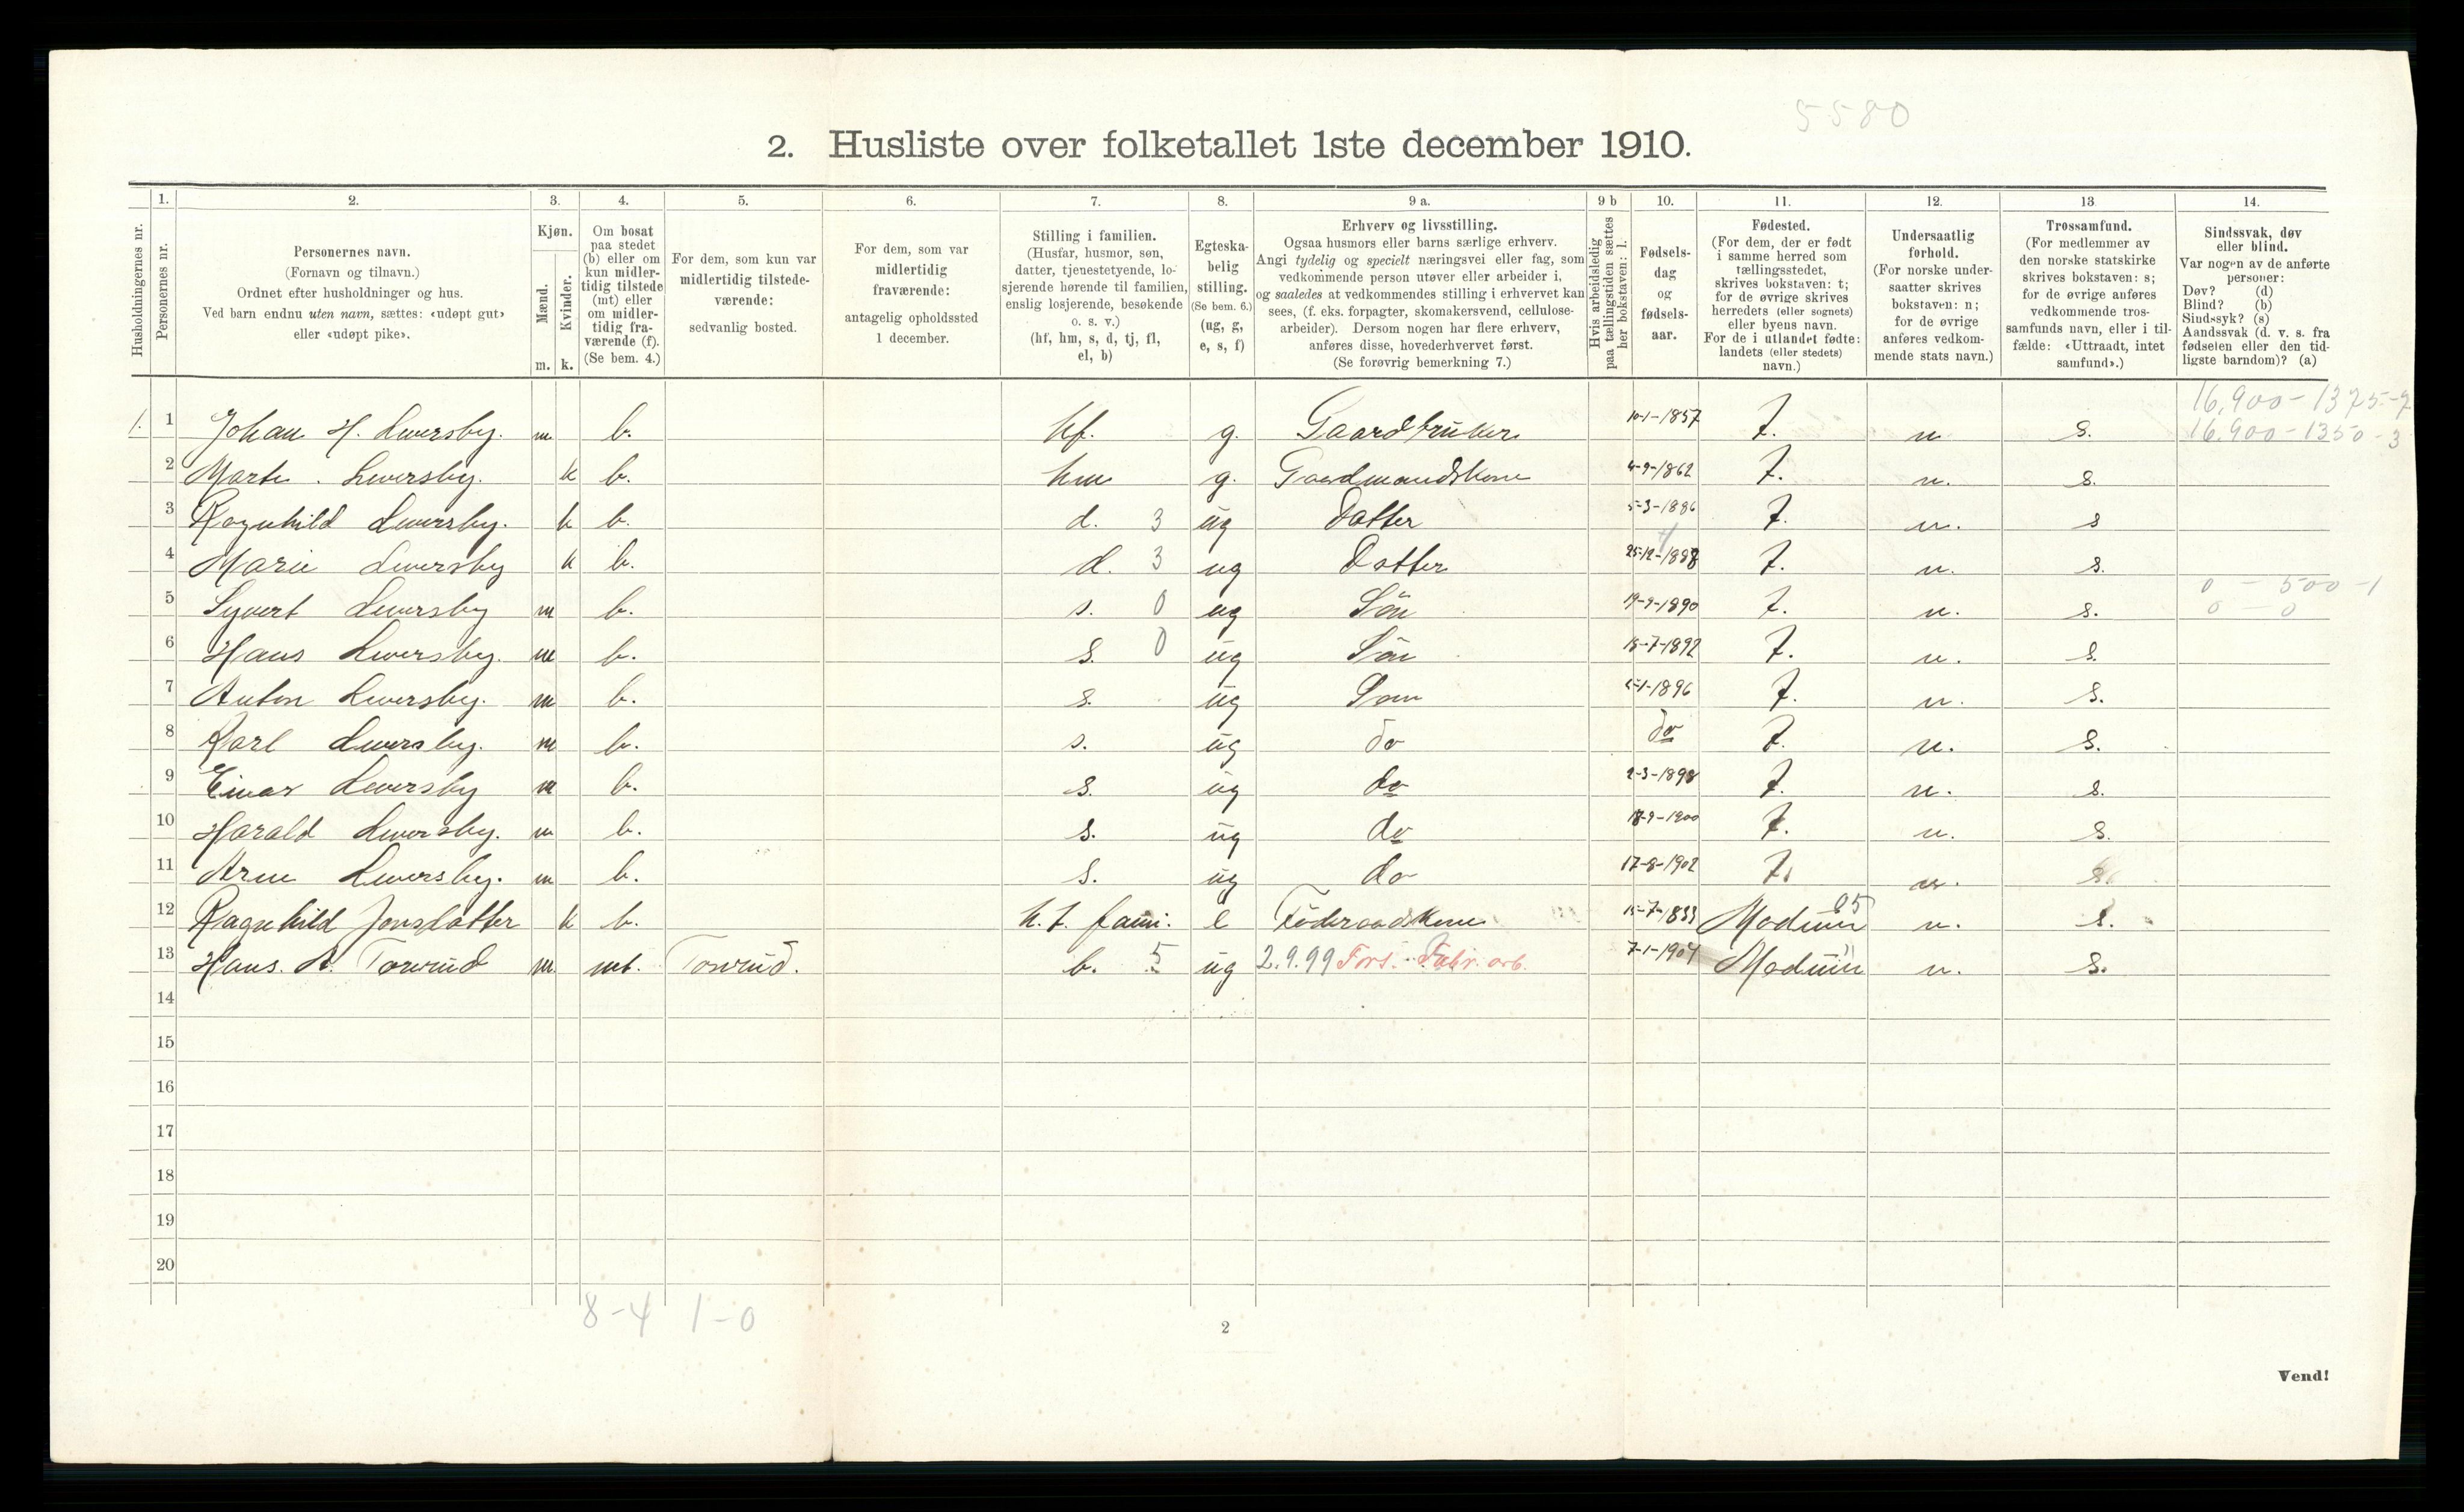 5580
2. Husliste over folketallet 1ste december 1910.
1. 2. 3. 4. 5. 6. 7. 8. 9 a. 9 b 10. 11. 12. 13 14.
Husholdningernes nr.
Personernes nr.
Personernes navn.
(Fornavn og tilnavn.)
Ordnet efter husholdninger og hus.
Ved barn endnu uten navn, sættes: «udøpt gut»
eller «udøpt pike».
Kjøn.
Mænd.
Kvinder.
m. k.
Om bosat
paa stedet
(b) eller om
kun midler-
tidig tilstede
(mt) eller
om midler-
tidig fra-
værende (f).
(Se bem. 4.)
For dem, som kun var
midlertidig tilstede-
værende:
sedvanlig bosted.
For dem, som var
midlertidig
fraværende:
antagelig opholdssted
1 december.
Stilling i familien.
(Husfar, husmor, søn,
datter, tjenestetyende, lo-
sjerende hørende til familien,
enslig losjerende, besøkende
o. s. v.)
(hf, hm, s, d, tj, fl,
el, b)
Egteska-
belig
stilling.
(Se bem. 6.)
(ug, g,
e, s, f)
Erhverv og livsstilling.
Ogsaa husmors eller barns særlige erhverv.
Angi tydelig og specielt næringsvei eller fag, som
vedkommende person utøver eller arbeider i,
og saaledes at vedkommendes stilling i erhvervet kan
sees, (f. eks. forpagter, skomakersvend, cellulose-
arbeider). Dersom nogen har flere erhverv,
anføres disse, hovederhvervet først.
(Se forøvrig bemerkning 7.)
Hvis arbeidsledig
paa tællingstiden sættes
her bokstaven: l.
Fødsels-
dag
og
fødsels-
aar.
Fødested.
(For dem, der er født
i samme herred som
tællingsstedet,
skrives bokstaven: t;
for de øvrige skrives
herredets (eller sognets)
eller byens navn.
For de i utlandet fødte:
landets (eller stedets)
navn.)
Undersaatlig
forhold.
(For norske under-
saatter skrives
bokstaven: n;
for de øvrige
anføres vedkom-
mende stats navn.)
Trossamfund.
(For medlemmer av
den norske statskirke
skrives bokstaven: s;
for de øvrige anføres
vedkommende tros-
samfunds navn, eller i til-
fælde: «Uttraadt, intet
samfund».)
Sindssvak, døv
eller blind.
Var nogen av de anførte
personer:
Døv? (d)
Blind? (b)
Sindssyk? (s)
Aandssvak (d. v. s. fra
fødselen eller den tid-
ligste barndom)? (a)
16,900 - 1375 -
1. 1 Johan H. m b. hf. g. Gaardbruker 10-1-1857 t. n s. 16.900 - 1350 - 3
2 Marte k b. hm g. Gaardmandskone 4-9-1862 t. n. s.
3 Ragnhild k b. d. 3 ug Datter 5-3-1886 t. n. s
4 Marie k b. d. 3 ug Datter 25-12-1888 t. n. s.
0 - 500 - 1
5 Syvert m b. s. 0 ug Sön 19-9-1890 t. n. s. 0 - 0
6 Hans m b. s. 0 ug Sön 15-7-1892 t. n. s.
7 Anton m b. s. ug Sön 1896 t. n. s.
8 Karl m b. s. ug do do t. n. s.
9 Einar m b. s. ug do 2-3-1898 t. n. s.
10 Harald m b. s. ug do 18-9-1900 t. n. s.
11 Arne m b. s. ug do 17-8-1902 t. n. s
12 Ragnhild Jonsdatter k b. h. t. fami. e Föderaadskone 15-7-1833 Modum n. s.
13 Hans. A. Torrud m mt. Torrud. b. 5 ug 2.9.99 Fors. Fabr. arb. 7-1-1904 Modum n. s.
14
15
16
17
18
19
20
8-4 1-0
2
Vend!